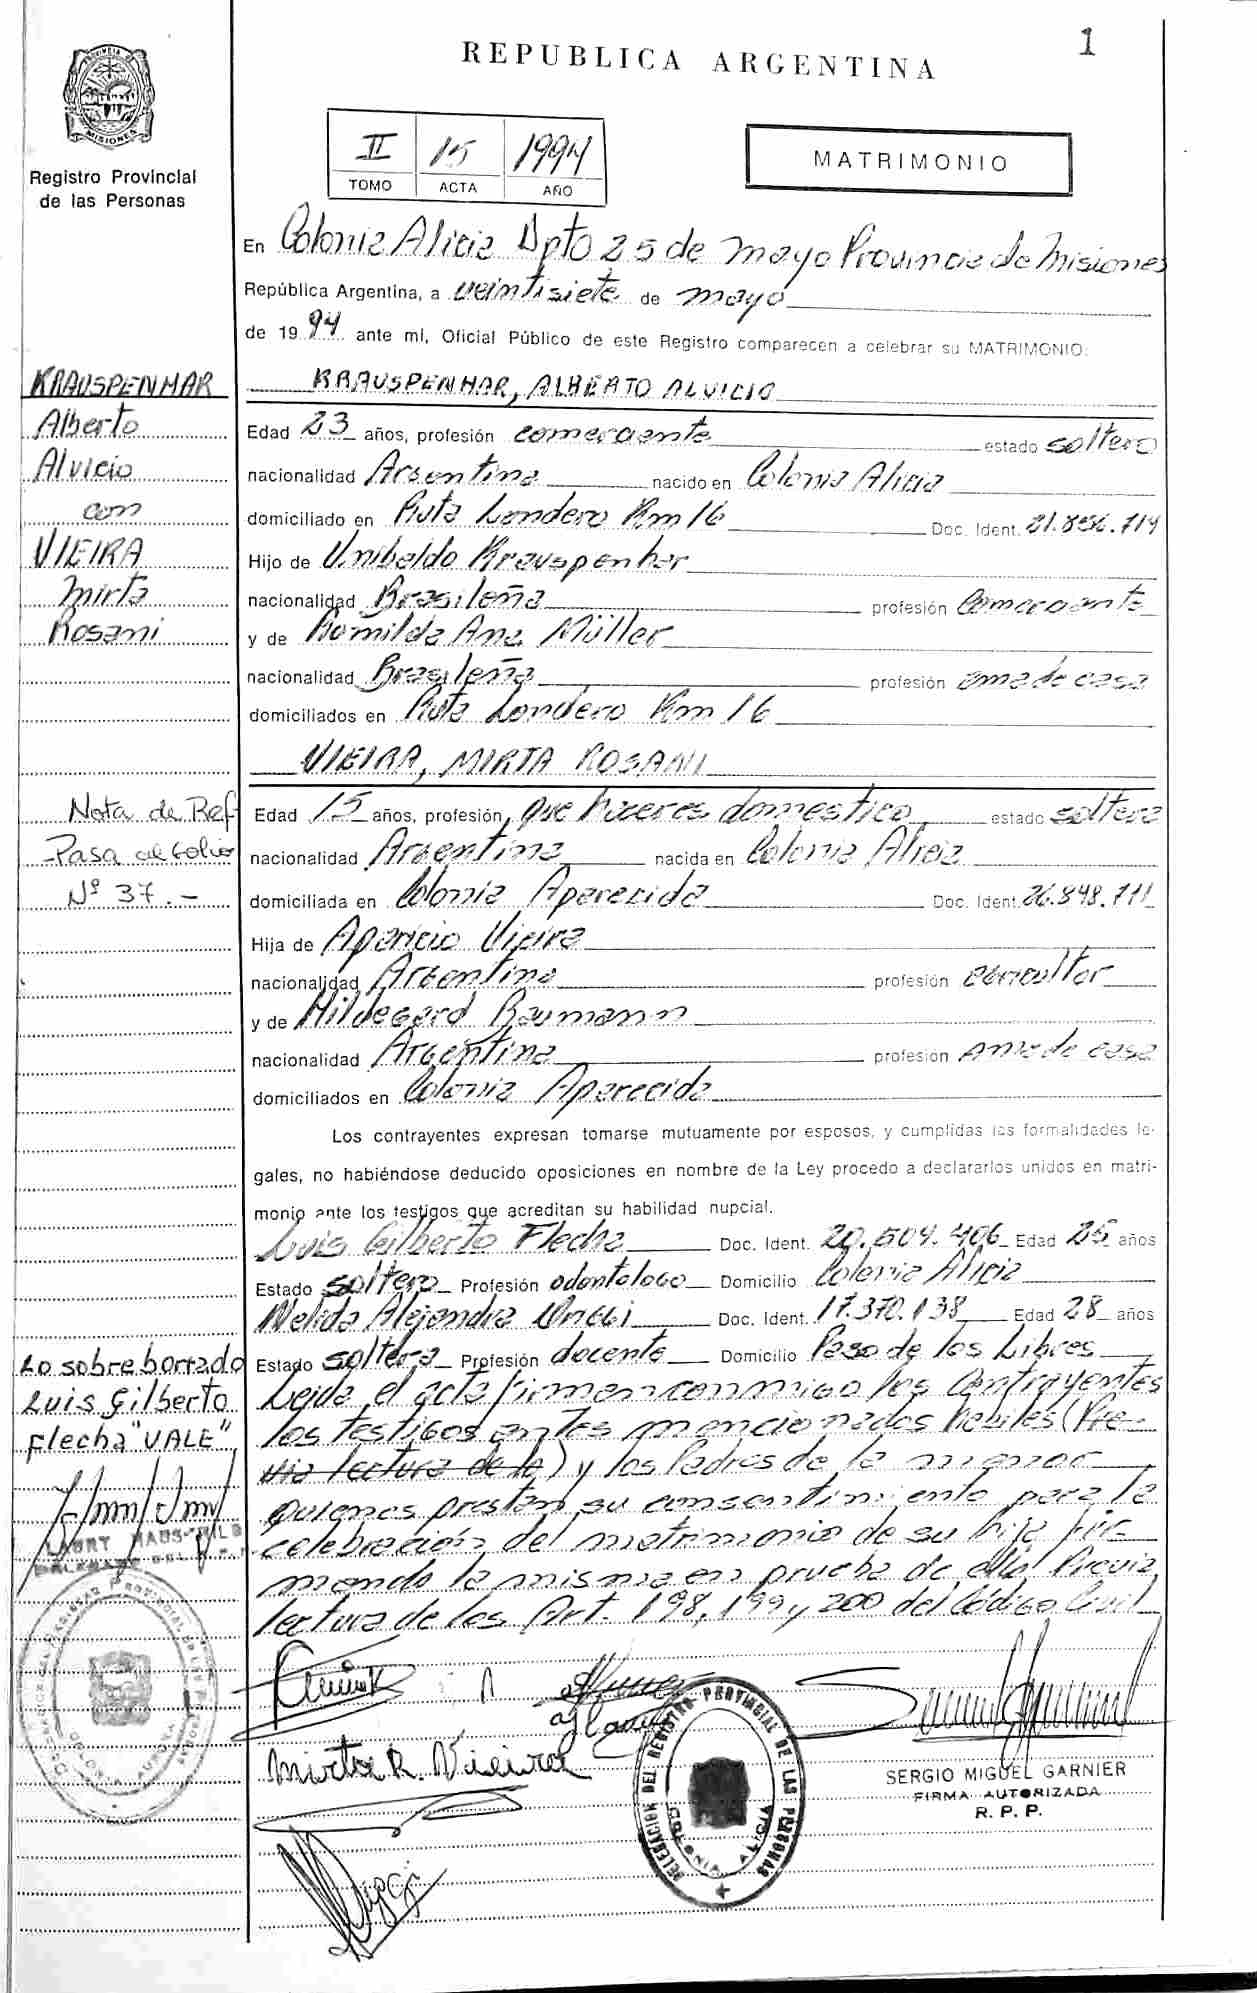 1
REPUBLICA ARGENTINA
PROVINCIA DE MISIONES
Registro Provincial
de las Personas
II 15 1994
TOMO ACTA AÑO
MATRIMONIO
En Colonia Alicia Dpto 25 de mayo Provincia de Misiones
República Argentina, a veintisiete de mayo
de 1994 ante mi, Oficial Público de este Registro comparecen a celebrar su MATRIMONIO:
KRAUSPENHAR
Alberto
Alvicio
con
VIEIRA
Mirta
Rosani
KRAUSPENHAR, ALBERTO ALVICIO
Edad 23 años, profesión comerciante estado soltero
nacionalidad Argentina nacido en Colonia Alicia
domiciliado en Ruta Londero Km 16 Doc. Ident. 21.856.714
Hijo de Unibaldo Krauspenhar
nacionalidad Brasileña profesión comerciante
y de Romilda Ana Müller
nacionalidad Brasileña profesión ama de casa
domiciliados en Ruta Londero Km 16
VIEIRA, MIRTA ROSANI
Nota de Ref
Pasa al folio
Nº 37.-
Edad 15 años, profesión que haceres domestico estado soltera
nacionalidad Argentina nacida en Colonia Alicia
domiciliada en Colonia Aparecida Doc. Ident. 26.848.711
Hija de Aparicio Vieira
nacionalidad Argentina profesión agricultor
y de Hildegard Baumann
nacionalidad Argentina profesión ama de casa
domiciliados en Colonia Aparecida
Los contrayentes expresan tomarse mutuamente por esposos, y cumplidas las formalidades le-
gales, no habiéndose deducido oposiciones en nombre de la Ley procedo a declararlos unidos en matri-
monio ante los testigos que acreditan su habilidad nupcial.
Luis Gilberto Flecha Doc. Ident. 20.504.406 Edad 25 años
Estado soltero Profesión odontologo Domicilio Colonia Alicia
Nelida Alejandra Doc. Ident. 17.370.138 Edad 28 años
Estado soltera Profesión docente Domicilio Paso de los Libres
Leida el acta firman conmigo los Contrayentes
los testigos antes mencionados habiles (Pre-
via lectura de lo) y los Padres de la menor
quienes prestan su consentimiento para la
celebración del matrimonio de su hija fir-
mando la misma en prueba de ello Previa
lectura de los Art. 198, 199 y 200 del Código Civil
Lo sobreborrado
Luis Gilberto
Flecha "VALE"
Mirta R. Vieira
DELEGACION DEL REGISTRO PROVINCIAL DE LAS PERSONAS
COLONIA ALICIA
COLONIA AURORA
SERGIO MIGUEL GARNIER
FIRMA AUTORIZADA
R. P. P.